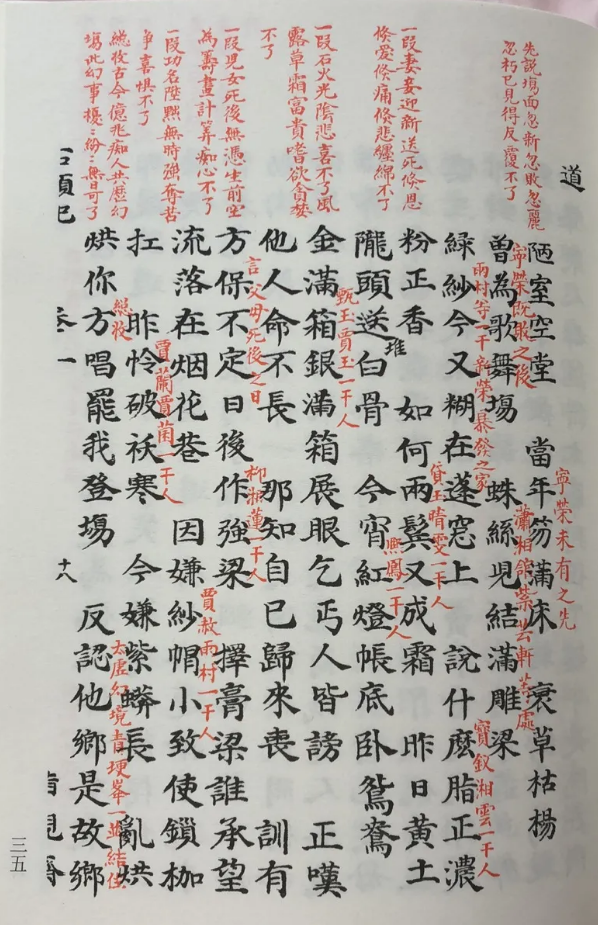 先說塲面忽新忽敗忽麗
忽朽已見得反覆不了
一段妻妾迎新送死倏恩
倏愛倏痛倏悲纏綿不了
一段石火光陰悲喜不了風
露草霜富貴嗜欲貪婪
不了
一段児女死後無憑生前空
為籌畫計筭痴心不了
一段功名陞黜無時强奪苦
爭喜惧不了
総收古今億兆痴人共歴幻
塲此幻事擾〻紛〻無日可了
道
寧榮未有之先
陋室空堂 當年笏滿床 衰草枯楊
寧榮既敗之後
瀟湘館紫芸軒等處
曽為歌舞塲 蛛絲児結滿雕梁
雨村等一干新榮暴發之家
寶釵湘雲一干人
緑紗今又糊在蓬窓上 說什麽脂正濃
貸玉晴雯一干人
粉正香 如何兩鬓又成霜 昨日黄土
堆
熙鳳一干人
隴頭送白骨 今宵紅燈帳底卧鴛鴦
甄玉賈玉一干人
金滿箱銀滿箱展眼乞丐人皆謗 正嘆
他人命不長 那知自已歸來喪 訓有
言父母死後之日
柳湘蓮一干人
方保不定日後作強梁 擇膏梁誰承望
賈赦雨村一干人
流落在烟花巷 因嫌紗帽小致使鎖枷
賈蘭賈菌一干人
扛 昨怜破袄寒 今嫌紫蟒長 亂烘
総收
太虚幻境青埂峯一並結住
烘你方唱罷我登塲 反認他鄉是故鄉
石頭記 卷一 十八
三五